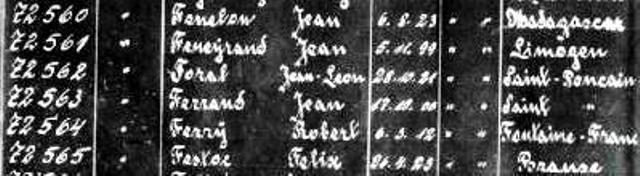 72 560 " Fenelon Jean 6.8.23 " " Madagascar
72 561 " Feneyrand Jean 6.11.99 " " Limogen
72 562 " Foral Jean-Leon 28.10.21 " " Saint-Poncain
72 563 " Ferrand Jean 17.10.00 " " Saint "
72 564 " Ferry Robert 6.3.12 " " Fontaine-Franc
72 565 " Festoc Felix 26.4.23 " " Brause